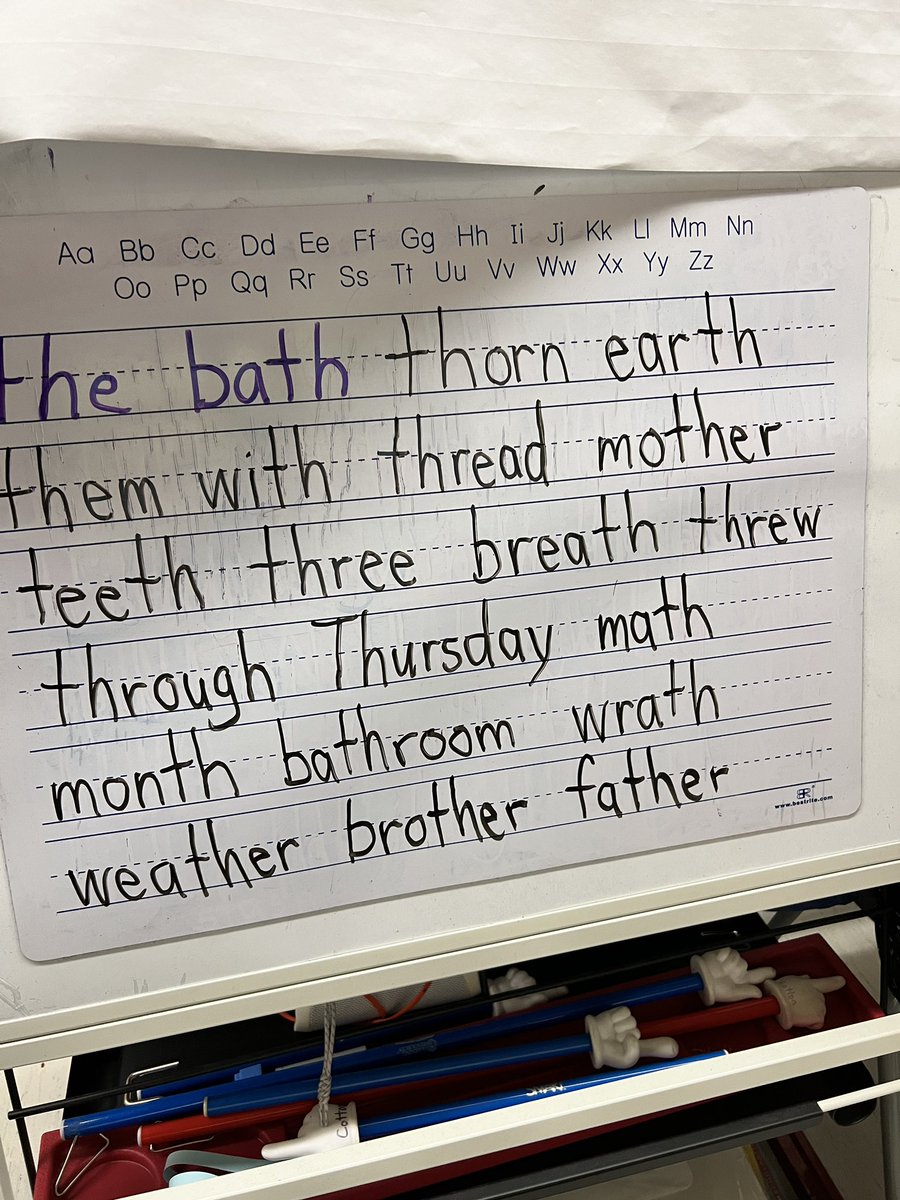 Aa Bb Cc Dd Ee Ff Gg Hh Ii Jj Kk Ll Mm Nn
Oo Pp Qq Rr Ss Tt Uu Vv Ww Xx Yy Zz
the bath thorn earth
them with thread mother
teeth three breath threw
through Thursday math
month bathroom wrath
weather brother father
www.bestrite.com
Cotton